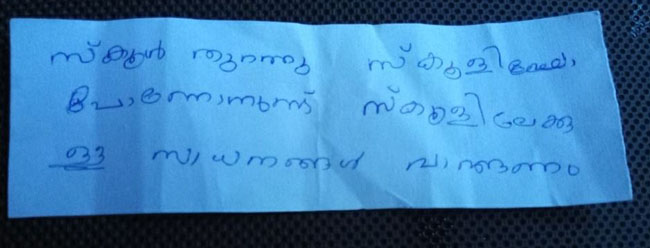 സ്കൂൾ തുറന്നു സ്കൂളിലേ
പോണോനുന്ന് സ്കൂളിലേക്കു
ഉള്ള സാധനങ്ങൾ വാങ്ങണം